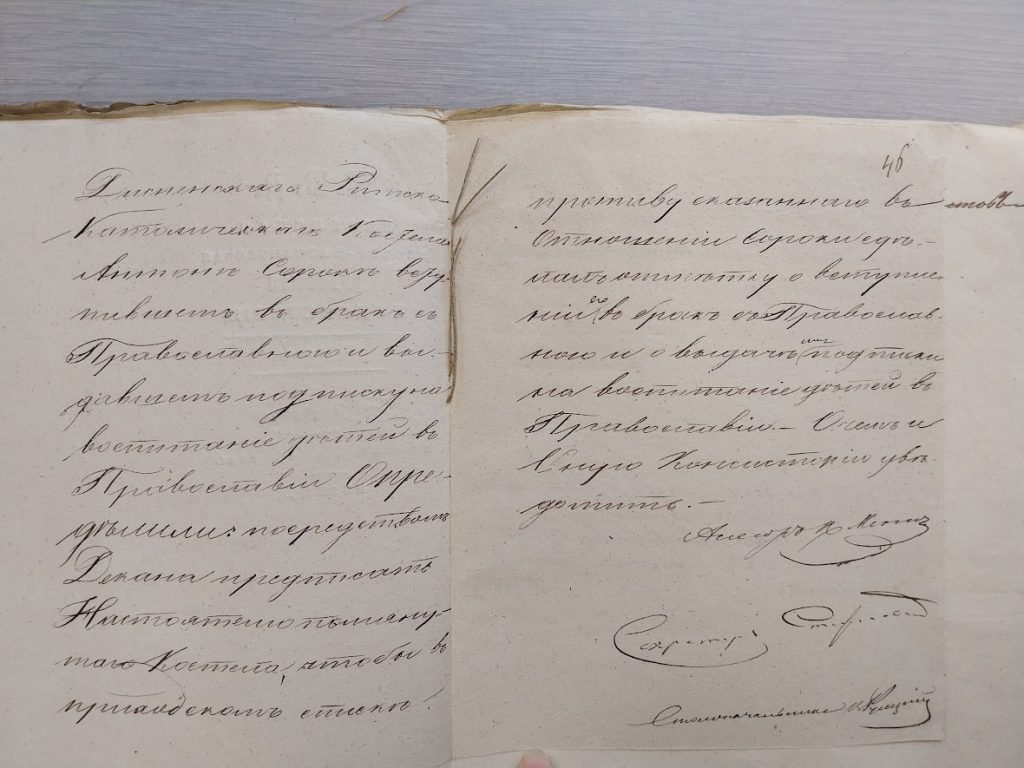 Дисненскаго Римско
Католическаго Костела
Антонъ Сорокъ всту
пившемъ въ бракъ съ
Православною и вы-
давшемъ подписку на
воспитаніе дѣтей въ
Православіи Опре-
дѣлили: посредствомъ
Декана предписать
Настоятелю помяну-
таго Костела, чтобы въ
приходскомъ спискѣ
46.
противу сказаннаго въ
Отношеніи Сороки сдѣ-
лалъ отмѣтку о вступле
ніи его въ бракъ съ Православ-
ною и о выдачѣ имъ подписки
на воспитаніе дѣтей въ
Православіи. – О чемъ и
Оную Консисторію увѣ-
домить. –
Асесоръ К.
Секретарь
Столоначальникъ